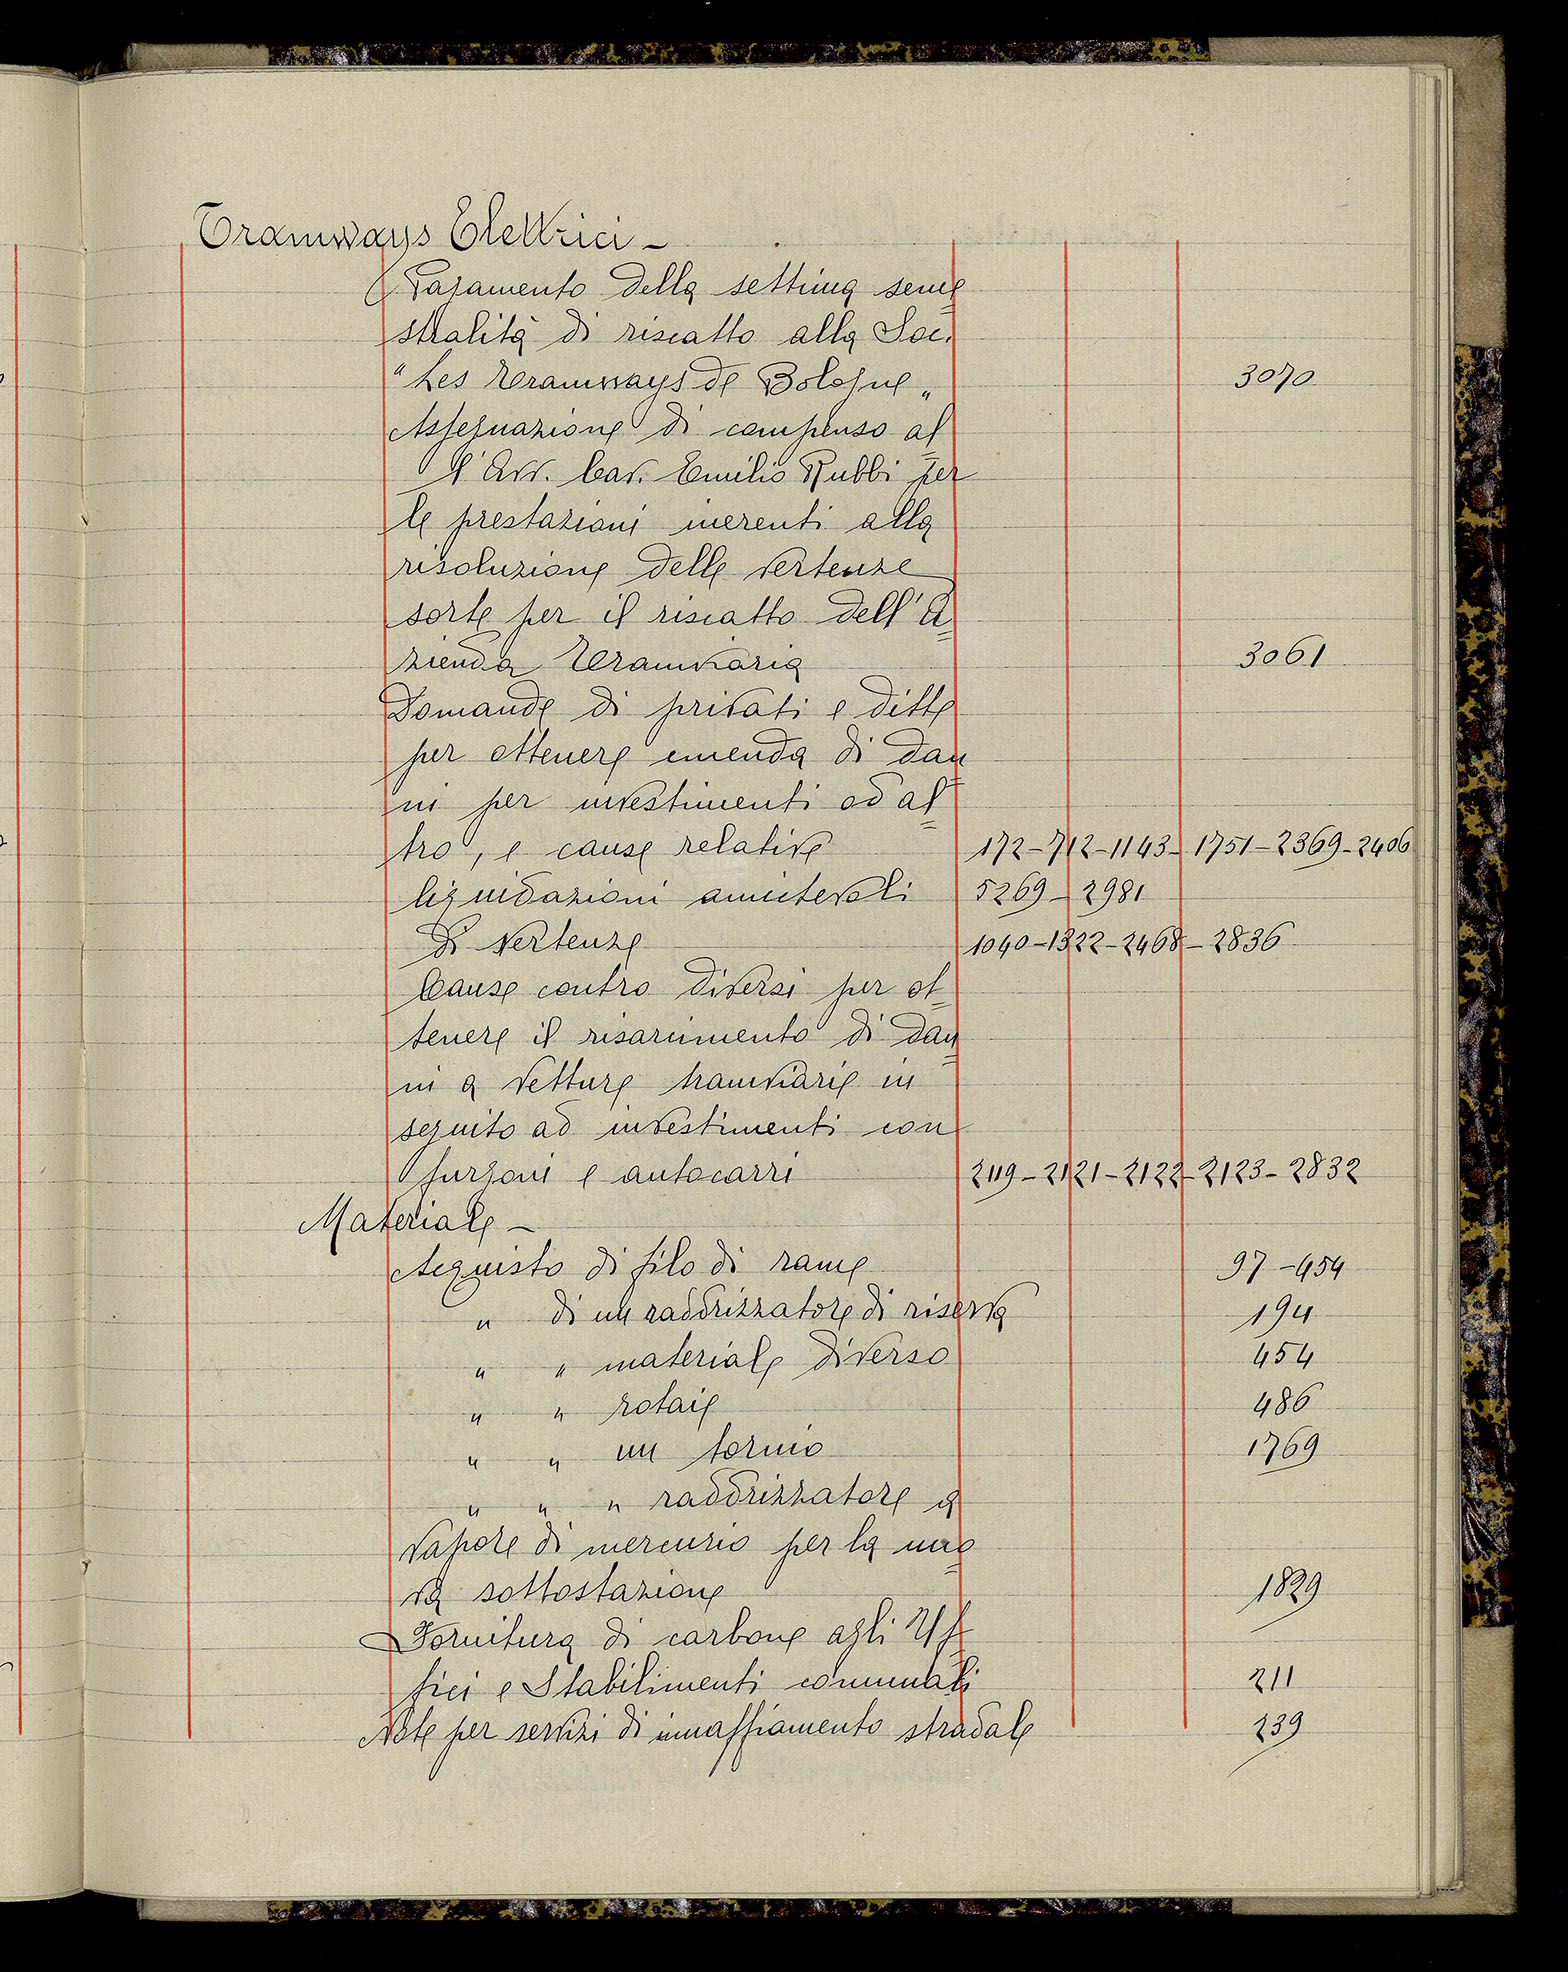 Tramways Elettrici -
Pagamento della settima seme=
stralità di riscatto alla Soc.
"Les Tramways de Bologne„ 3070
Assegnazione di compenso al=
l'Avv. Cav. Emilio Rubbi per
le prestazioni inerenti alla
risoluzione delle vertenze
sorte per il riscatto dell'A=
zienda Tramviaria 3061
Domande di privati e ditte
per ottenere emenda di dan=
ni per investimenti ed al=
tro, e cause relative 172-712-1143-1751-2369-2406
liquidazioni amichevoli 5269-2981
di vertenze 1040-1322-2468-2836
Cause contro diversi per ot=
tenere il risarcimento di dan=
ni a vetture tramviarie in
seguito ad investimenti con
furgoni e autocarri 2119-2121-2122-2123-2832
Materiale -
Acquisto di filo di rame 97-454
" di un raddrizzatore di riserva 194
" " materiale diverso 454
" " rotaie 486
" " un tornio 1769
" " " raddrizzatore a
vapore di mercurio per la nuo=
va sottostazione 1829
Fornitura di carbone agli Uf=
fici e Stabilimenti comunali 211
Note per servizi di innaffiamento stradale 239